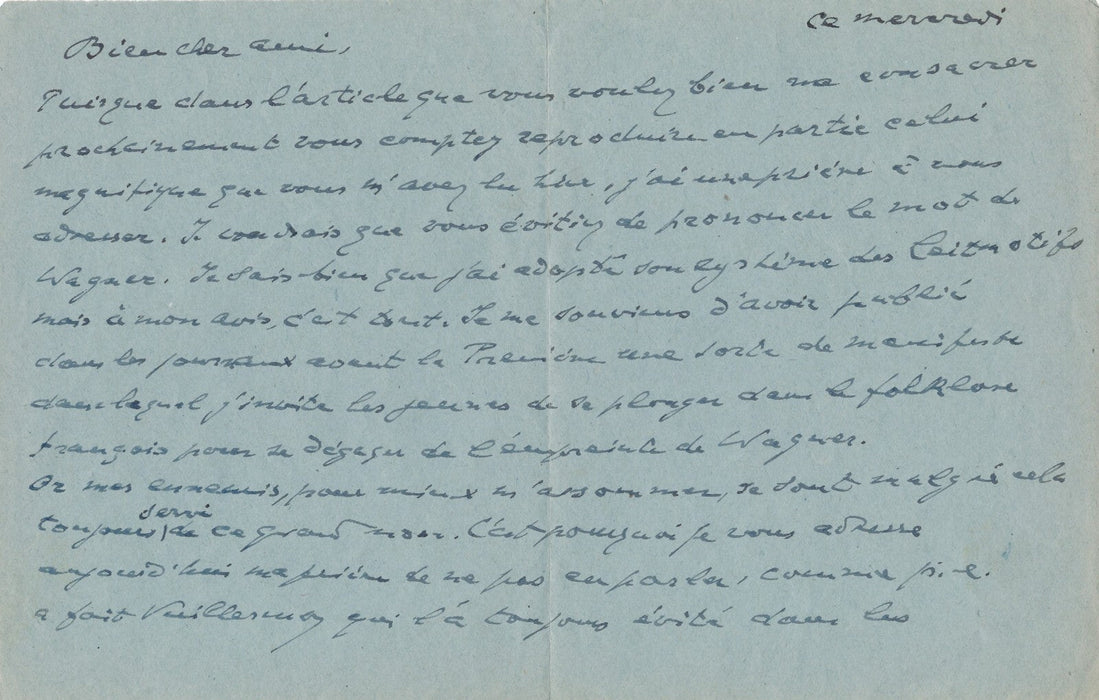 ce mercredi
Bien cher ami,
Puisque dans l'article que vous voulez bien me consacrer
prochainement vous comptez reproduire en partie celui
magnifique que vous m'avez lu hier, j'ai une prière à vous
adresser. Je voudrais que vous évitiez de prononcer le mot de
Wagner. Je sais bien que j'ai adopté son système des leitmotifs
mais à mon avis, c'est tout. Je me souviens d'avoir publié
dans les journaux avant la Première une sorte de manifeste
dans lequel j'invite les jeunes de se plonger dans le folklore
français pour se dégager de l'empreinte de Wagner.
Or mes ennemis, pour mieux m'assommer, se sont malgré cela
toujours servi de ce grand nom. C'est pourquoi je vous adresse
aujourd'hui ma prière de ne pas en parler, comme p.e.
a fait Vuillermoz qui l'a toujours évité dans les